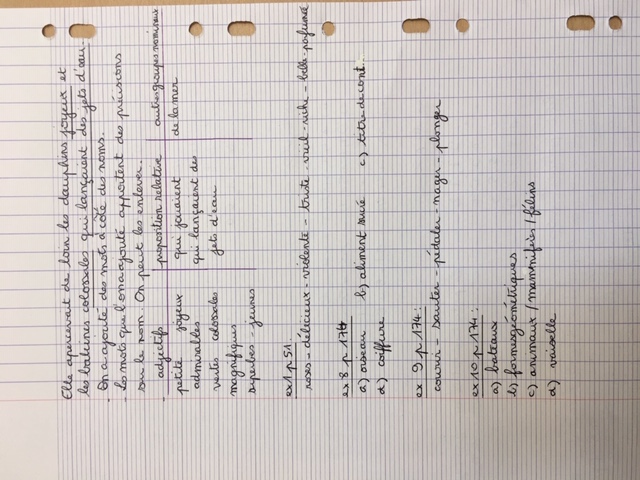 Elle apercevait de loin les dauphins joyeux et
les baleines colossales qui lançaient des jets d'eau.
- On a ajouté des mots à côté des noms.
- Les mots que l'on a ajouté apportent des précisions
sur le nom. On peut les enlever.
adjectifs proposition relative autres groupes nominaux
petite joyeux qui jouaient de la mer
admirables qui lançaient des
vertes colossales jets d'eau
magnifiques
superbes jeunes
ex 1 p 51
roses - délicieux - violente - triste - vieil - riche - belle - parfumée
ex 8 p 174
a) oiseau b) aliment sucré c) titre de cont..
d) coiffure
ex 9 p 174 :
courir - sauter - pédaler - nager - plonger
ex 10 p 174 :
a) bateaux
b) formes géométriques
c) animaux / mammifères / félins
d) vaisselle